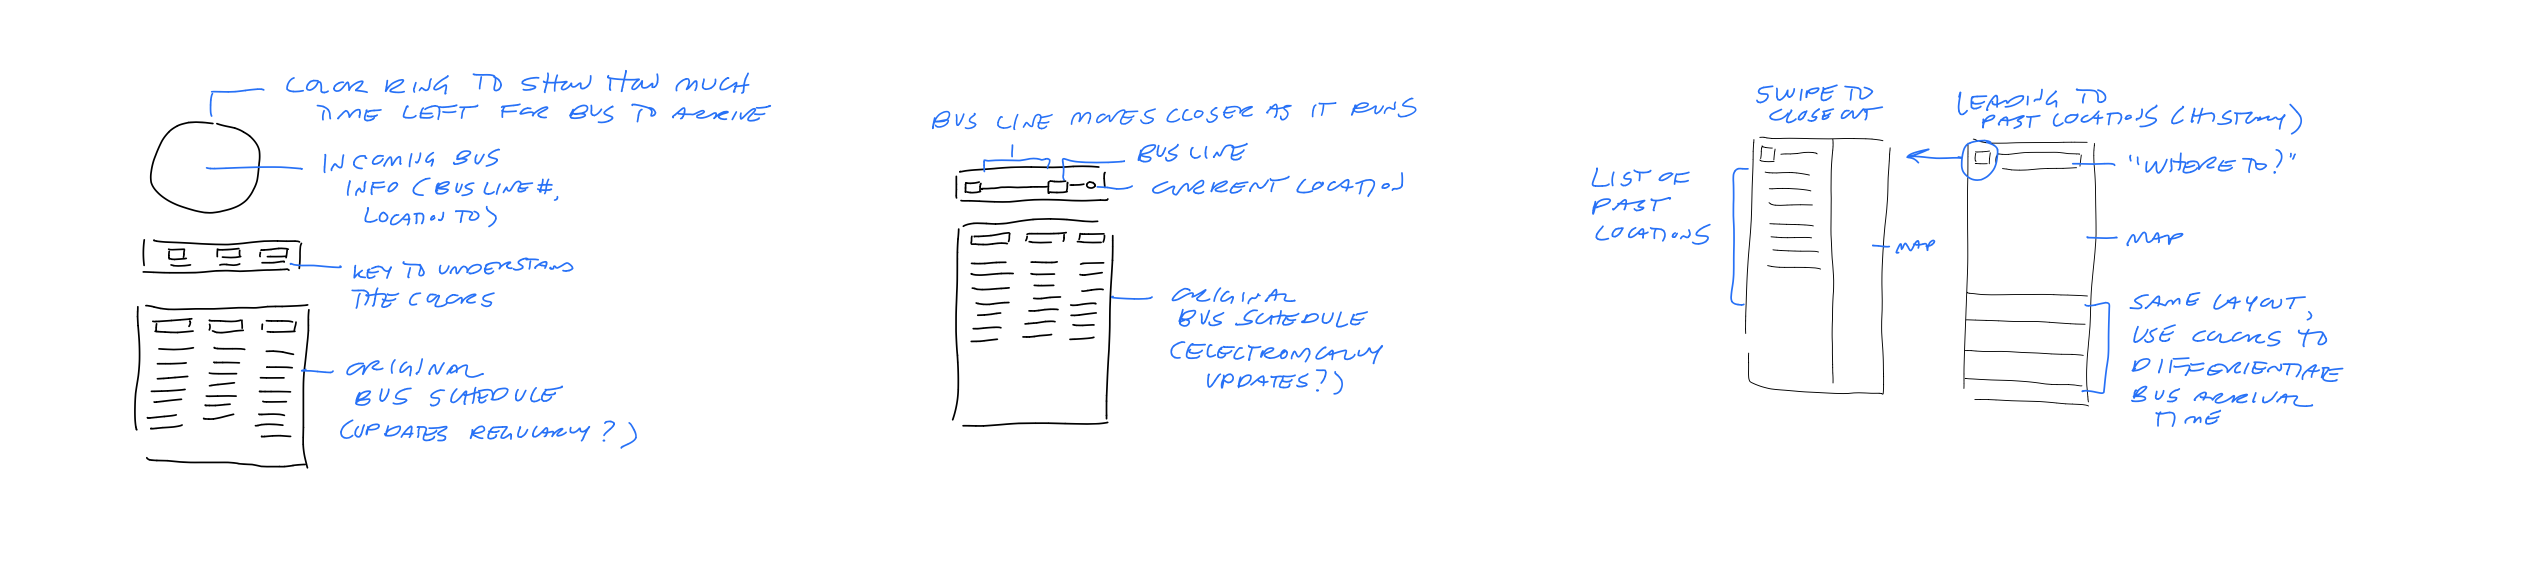 COLOR RING TO SHOW HOW MUCH
TIME LEFT FOR BUS TO ARRIVE
INCOMING BUS
INFO (BUS LINE #,
LOCATION TO)
KEY TO UNDERSTAND
THE COLORS
ORIGINAL
BUS SCHEDULE
(UPDATES REGULARLY?)
BUS LINE MOVES CLOSER AS IT RUNS
BUS LINE
CURRENT LOCATION
ORIGINAL
BUS SCHEDULE
(ELECTRONICALLY
UPDATES?)
SWIPE TO
CLOSE OUT
LIST OF
PAST
LOCATIONS
MAP
LEADING TO
PAST LOCATIONS (HISTORY)
"WHERE TO?"
MAP
SAME LAYOUT,
USE COLORS TO
DIFFERIENTIATE
BUS ARRIVAL
TIME